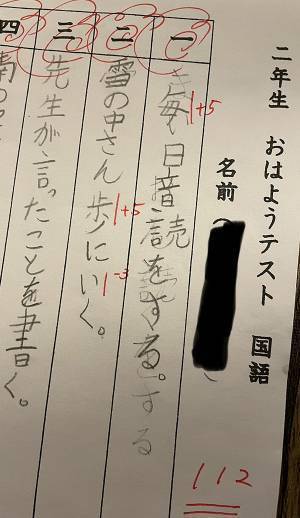 二年生 おはようテスト 国語
名前（
112
一
毎日音読をする。する
+5
二
雪の中さん歩にいく。
+5
-3
三
先生が言ったことを書く。
四